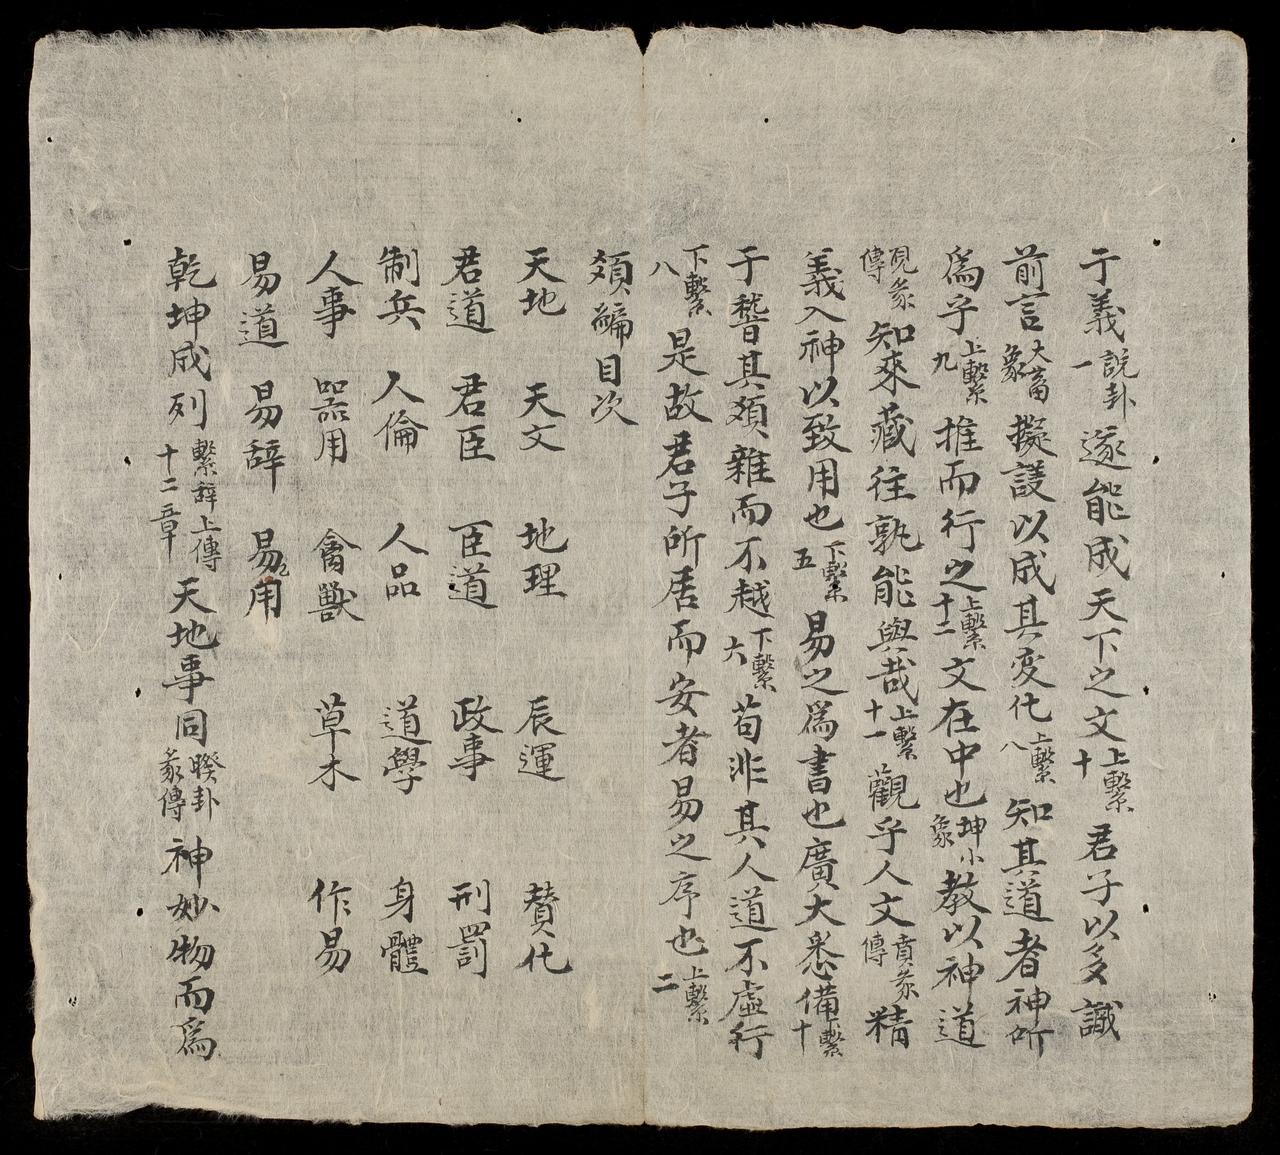 于義說卦一遂能成天下之文上繫十君子以多識
前言大畜象擬議以成其変化上繫八知其道者神所
爲乎上繫九推而行之上繫十二文在中也坤小象教以神道
觀彖傳知來藏往孰能與哉上繫十一觀乎人文賁彖傳精
義入神以致用也下繫五易之爲書也廣大悉備繫十
于稽其類雜而不越下繫六苟非其人道不虛行
下繫八是故君子所居而安者易之序也上繫二
類編目次
天地 天文 地理 辰運 贊化
君道 君臣 臣道 政事 刑罰
制兵 人倫 人品 道學 身體
人事 器用 禽獸 草木 作易
易道 易辭 易用
乾坤成列繫辭上傳十二章天地事同睽卦彖傳神妙物而爲